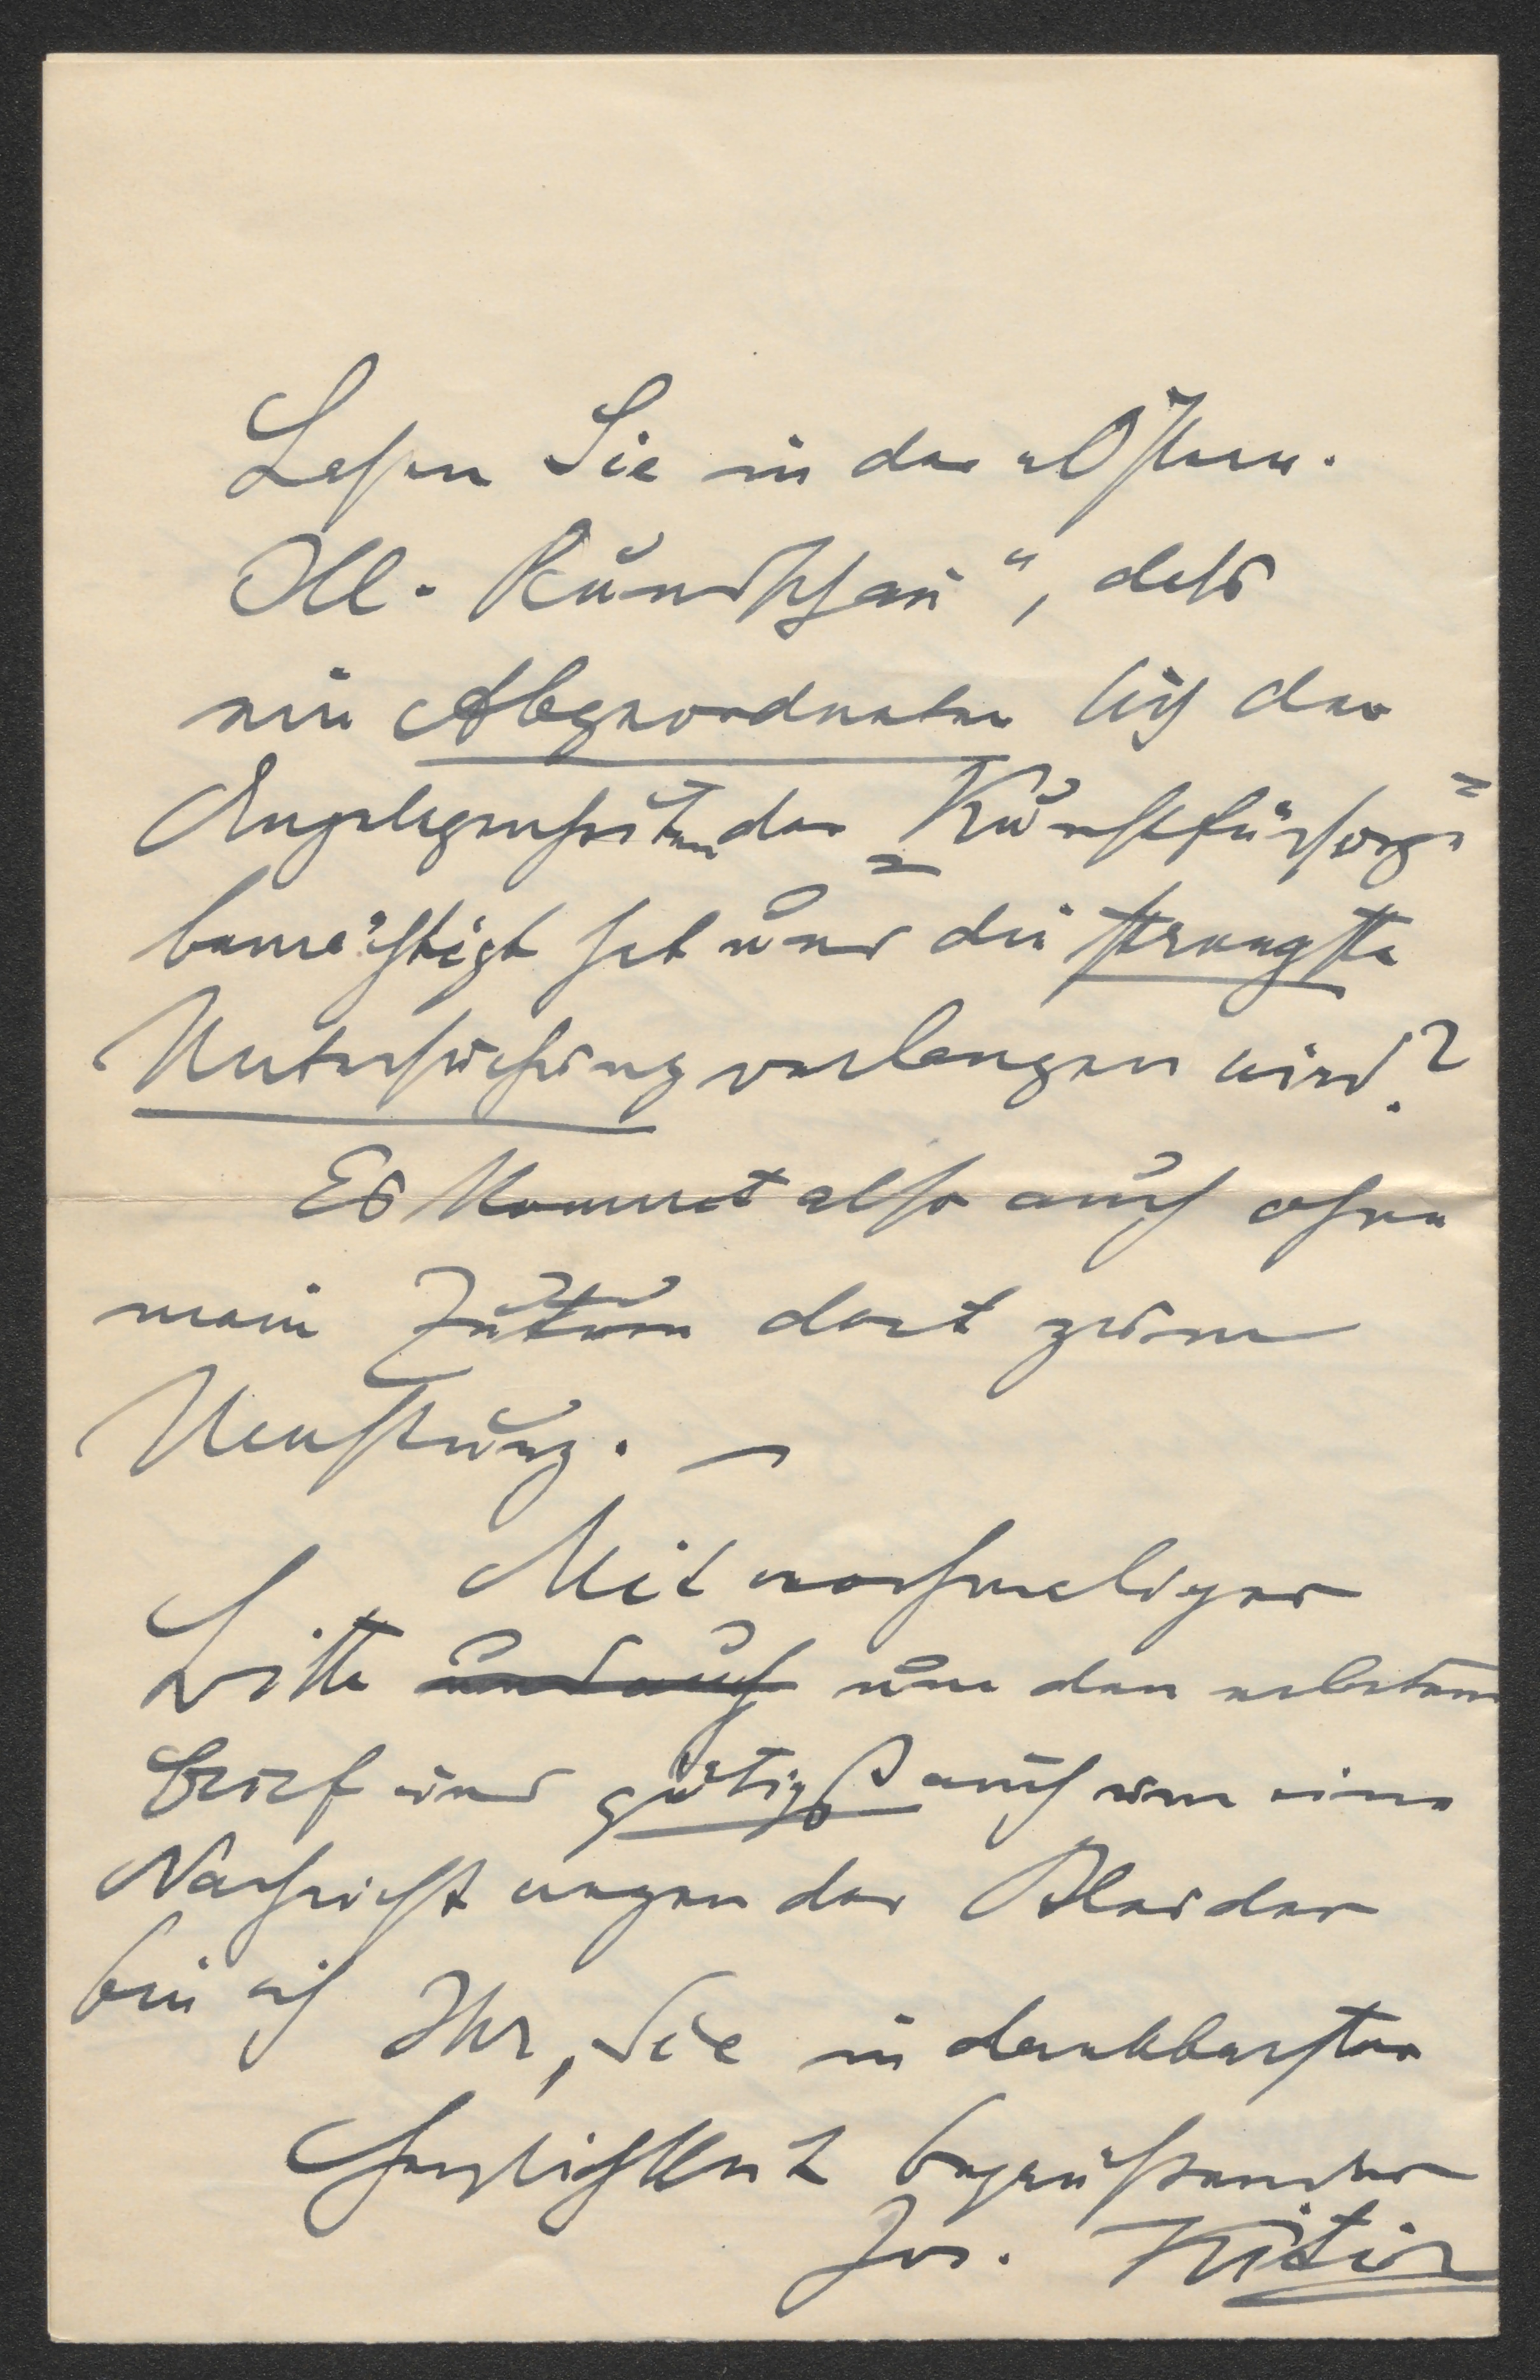 Lesen Sie in der „Osterr.
Ill. Rundschau“, daß
ein Abgeordneter sich der
Angelegenheiten der „Kunstfürsorge“
bemächtigt hat und die strengste
Untersuchung verlangen wird?
Es kommt also auch ohne
mein Zutun dort zum
Umsturz. —
Mit nochmaliger
Bitte und auch um den erbetenen
Brief und gütigst auch um eine
Nachricht wegen der Bilder
bin ich Ihr, Sie in dankbarster
Herzlichkeit begrüßender
Jos.